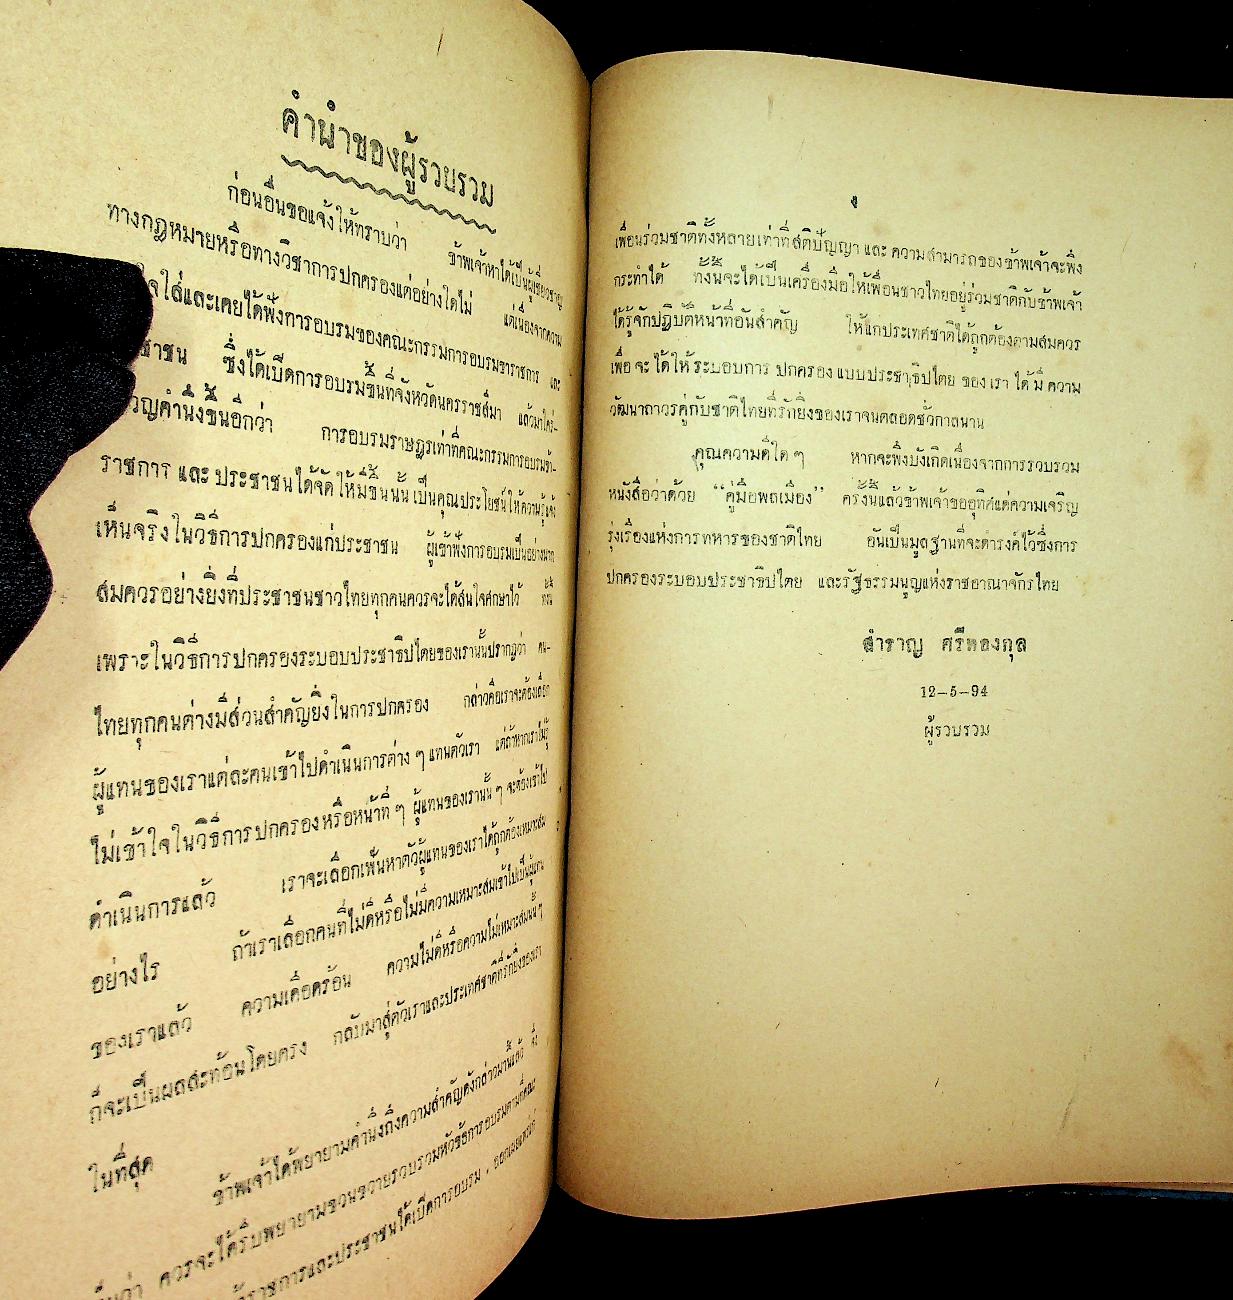 คำนำของผู้รวบรวม
ก่อนอื่นขอแจ้งให้ทราบว่า ข้าพเจ้าหาได้เป็นผู้เชี่ยวชาญ
ทางกฎหมายหรือทางวิชาการปกครองแต่อย่างใดไม่ แต่เนื่องจากความ
ใจใส่และเคยได้ฟังการอบรมของคณะกรรมการอบรมข้าราชการ และ
ชาชน ซึ่งได้เปิดการอบรมขึ้นที่จังหวัดนครราชสีมา แล้วมาใคร่-
วญคำนึงขึ้นอีกว่า การอบรมราษฎรเท่าที่คณะกรรมการอบรมข้า-
ราชการ และ ประชาชนได้จัดให้มีขึ้นนั้น เป็นคุณประโยชน์ให้ความรู้แจ้ง
เห็นจริงในวิธีการปกครองแก่ประชาชน ผู้เข้าฟังการอบรมเป็นอย่างมาก
สมควรอย่างยิ่งที่ประชาชนชาวไทยทุกคนควรจะได้สนใจศึกษาไว้ ทั้งนี้
เพราะในวิธีการปกครองระบอบประชาธิปไตยของเรานั้นปรากฏว่า คน-
ไทยทุกคนต่างมีส่วนสำคัญยิ่งในการปกครอง กล่าวคือเราจะต้องเลือก
ผู้แทนของเราแต่ละคนเข้าไปดำเนินการต่าง ๆ แทนตัวเรา แต่ถ้าหากเราไม่รู้
ไม่เข้าใจในวิธีการปกครองหรือหน้าที่ ๆ ผู้แทนของเรานั้น ๆ จะต้องเข้าไป
ดำเนินการแล้ว เราจะเลือกเฟ้นหาตัวผู้แทนของเราได้ถูกต้องเหมาะสม
อย่างไร ถ้าเราเลือกคนที่ไม่ดีหรือไม่มีความเหมาะสมเข้าไปเป็นผู้แทน
ของเราแล้ว ความเดือดร้อน ความไม่ดีหรือความไม่เหมาะสมนั้น ๆ
ก็จะเป็นผลสะท้อนโดยตรง กลับมาสู่ตัวเราและประเทศชาติที่รักยิ่งของเรา
ในที่สุด
ข้าพเจ้าได้พยายามคำนึงถึงความสำคัญดังกล่าวมานี้แล้ว จึง
ว่า ควรจะได้รีบพยายามขวนขวายรวบรวมหัวข้อการอบรมตามที่คณะ
ราชการและประชาชนได้เปิดการอบรม
ง
เพื่อนร่วมชาติทั้งหลายเท่าที่สติปัญญา และ ความสามารถของข้าพเจ้าจะพึง
กระทำได้ ทั้งนี้จะได้เป็นเครื่องมือให้เพื่อนชาวไทยอยู่ร่วมชาติกับข้าพเจ้า
ได้รู้จักปฏิบัติหน้าที่อันสำคัญ ให้แก่ประเทศชาติได้ถูกต้องตามสมควร
เพื่อ จะ ได้ ให้ ระบอบการ ปกครอง แบบประชาธิปไตย ของ เรา ได้ มี ความ
วัฒนาถาวรคู่กับชาติไทยที่รักยิ่งของเราจนตลอดชั่วกาลนาน
คุณความดีใด ๆ หากจะพึงบังเกิดเนื่องจากการรวบรวม
หนังสือว่าด้วย “คู่มือพลเมือง” ครั้งนี้แล้วข้าพเจ้าขออุทิศแด่ความเจริญ
รุ่งเรืองแห่งการทหารของชาติไทย อันเป็นมูลฐานที่จะดำรงค์ไว้ซึ่งการ
ปกครองระบอบประชาธิปไตย และรัฐธรรมนูญแห่งราชอาณาจักรไทย
สำราญ ศรีทองกุล
12-5-94
ผู้รวบรวม